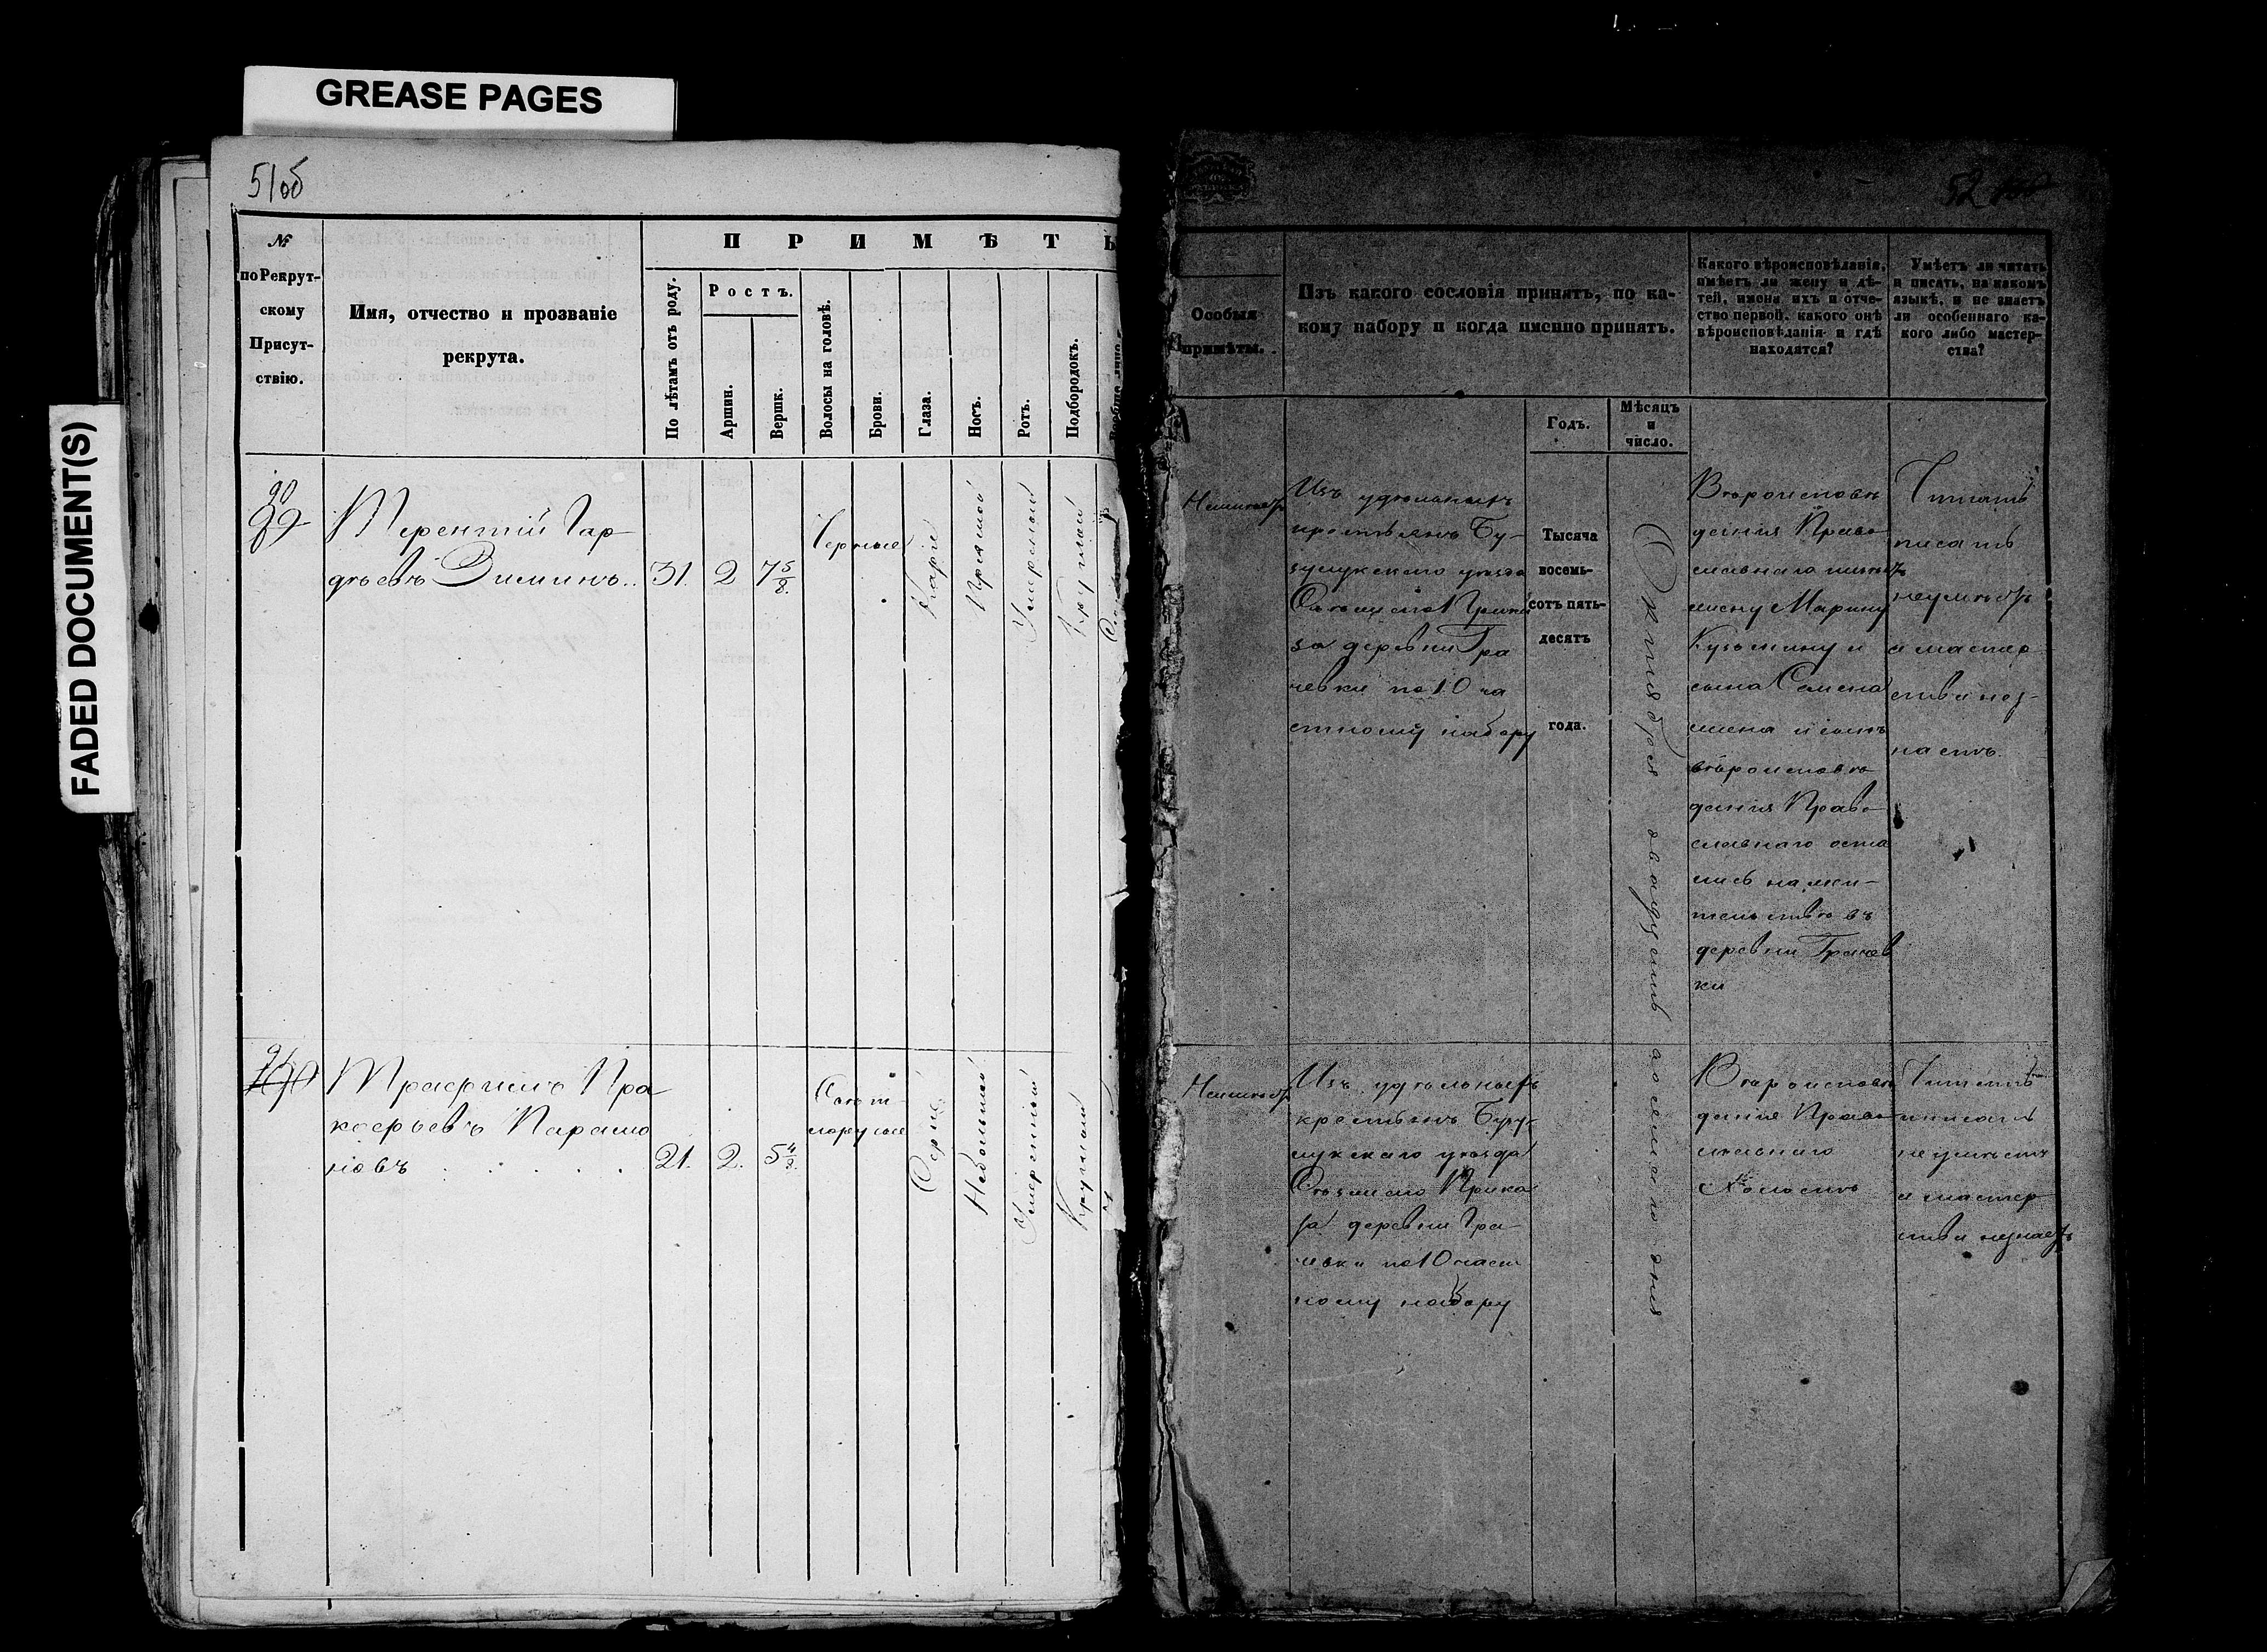 GREASE PAGES
FADED DOCUMENT(S)
51об
№
по Рекрут-
скому
Присут-
ствію.
Имя, отчество и прозваніе
рекрута.
П Р И М Ѣ Т Ы
По лѣтамъ отъ роду.
Ростъ.
Аршин.
Вершк.
Волосы на головѣ.
Брови.
Глаза.
Носъ.
Ротъ.
Подбородокъ.
90
89
Терентій Гор
дѣевъ Зиминъ.
31.
2
7 5/8.
Черные
Каріе
Прямой
Умѣреный
Круглый
91
Трофимъ Про
кофьевъ Парамо
новъ
21.
2.
5 4/8.
Свѣт
лорусые
Серые
Небольшой
Умеренный
Круглый
52
Особыя
примѣты.
Изъ какого сословія принятъ, по ка-
кому набору и когда именно принятъ.
Годъ.
Мѣсяцъ
и
число.
Какого вѣроисповѣданія,
имѣетъ ли жену и дѣ-
тей, имена ихъ и отче-
ство первой, какого онѣ
вѣроисповѣданія и гдѣ
находятся?
Умѣетъ ли читать
и писать, на какомъ
языкѣ, и не знаетъ
ли особеннаго ка-
кого либо мастер-
ства?
Неимѣетъ
Изъ удѣльныхъ
крестьянъ Бу-
зулукскаго уѣзда
Прика
за деревни Гра
чевки по 10 ча
стному набору
Тысяча
восемь-
сотъ пять-
десятъ
года.
Октября двадцать осьмаго дня
Вѣроисповѣ
данія Право
славнаго имѣетъ
жену Марину
Кузьмину и
сына Семена
жена и сынъ
вѣроисповѣ
данія Право
славнаго оста
лись на жи-
тельствѣ въ
деревни Грачев
ки
Читать
писать
неумѣетъ
а мастер
ства нез-
наетъ.
Неимѣетъ
Изъ удѣльныхъ
крестьянъ Бузу
лукскаго уѣзда
Прика
за деревни Гра
чевки по 10 част
ному набору
Вѣроисповѣ
данія Право
славнаго
Холостъ
Читать
писать
неумѣетъ
а мастер
ства незнаетъ